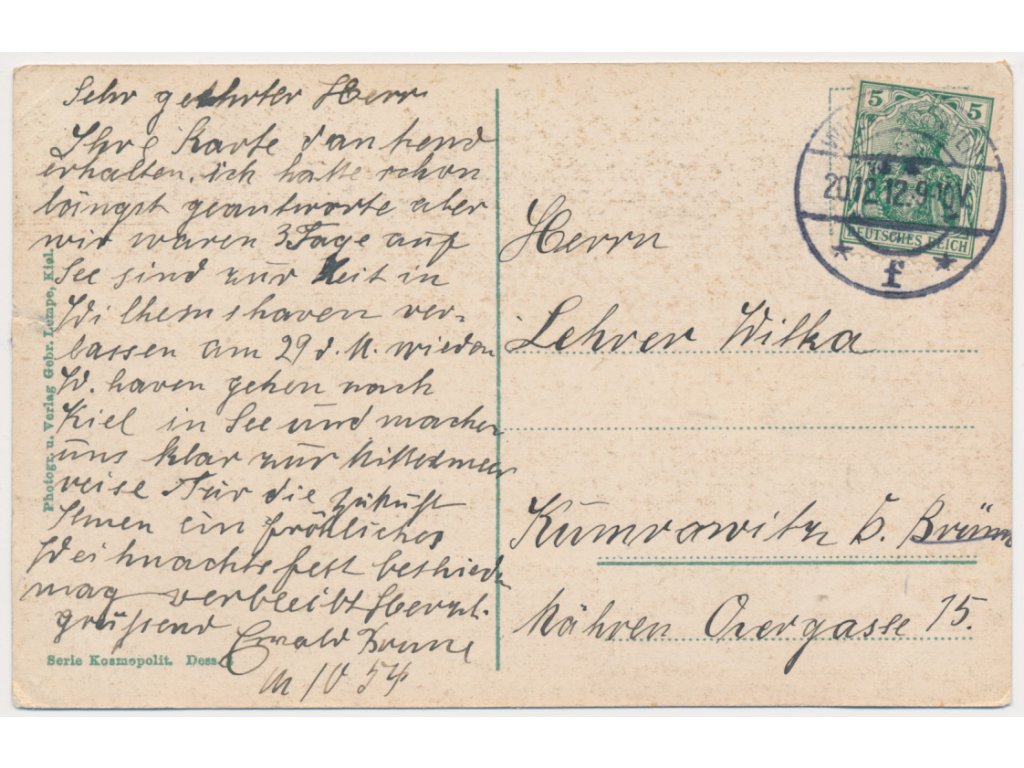 Sehr geehrter Herr
Ihre Karte dankend
erhalten. ich hätte schon
längst geantworte aber
wir waren 3 Tage auf
See sind zur Zeit in
Wilhemshaven ver-
lassen am 29 d. M. wieder
W. haven gehen nach
Kiel in See und machen
uns klar zur Mittelmeer
reise Für die Zukuft
Ihnen ein fröhliches
Weihnachtsfest beschieden
mag verbleibt Herzl.
grüßend
Ewald
Photogr. u. Verlag Gebr. Lempe, Kiel.
Serie Kosmopolit. Dess.
5 5
DEUTSCHES REICH
20.12.12.9-10V.
* f *
Herrn
Lehrer Wilka
Kumrowitz b. Brünn
Mähren Ozergasse 15.